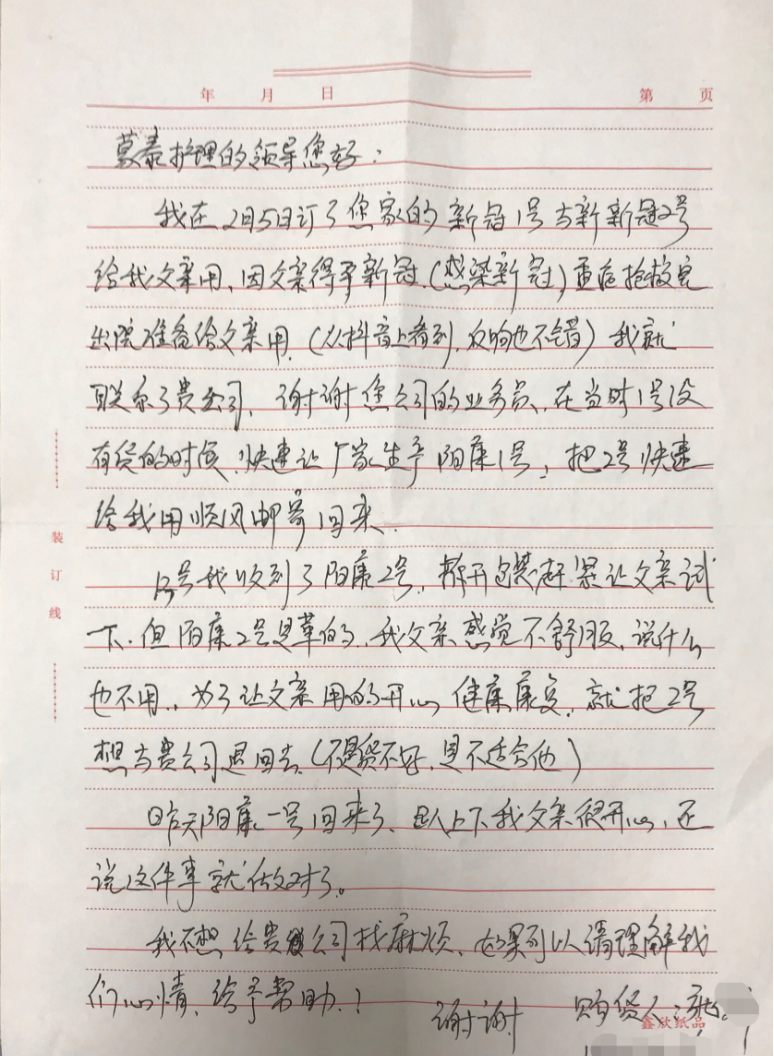 年 月 日 第 页
慕泰护理的领导您好：
我在2月5日订了您家的新冠1号与新新冠2号
给我父亲用，因父亲得平新冠（感染新冠）重症抢救完
出院准备给父亲用．（从抖音上看到，反响也不错）我就
联系了贵公司，谢谢您公司的业务员，在当时1号没
有货的时候，快速让厂家生产阳康1号，把2号快速
给我用顺风邮寄回来．
号我收到了阳康2号，拆开包装赶紧让父亲试
下．但阳康2号是革的，我父亲感觉不舒服，说什么
也不用．，为了让父亲用的开心健康康复，就把2号
想与贵公司退回去（不是货不好，是不适合他）
昨天阳康一号回来了，上下我父亲很开心，还
说这件事就做对了。
我不想给贵公司找麻烦，如果可以请理解我
们心情，给予帮助．！
谢谢 购货人：
装订线
鑫欣纸品